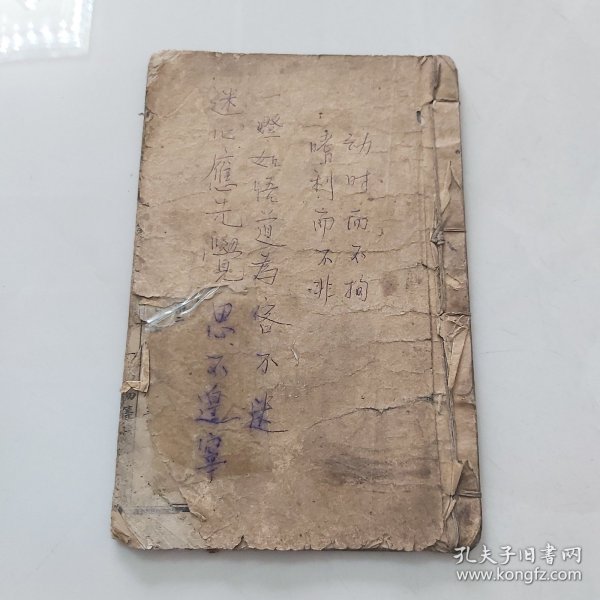 动时而不拘
嗜利而不非
一燈如悟道為客不迷
迷心應先覺思不遑寧
孔夫子旧书网
www.kongfz.com